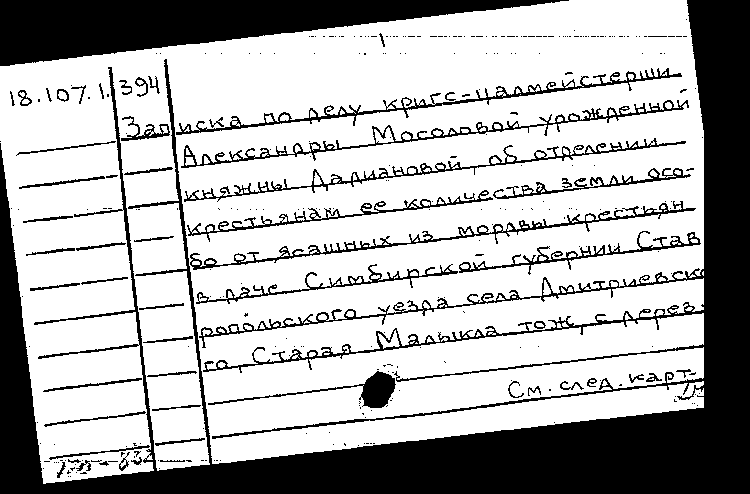 1
18.107.1. 394
Записка по делу кригс-цалмейстерши
Александры Мосоловой, урожденной
княжны Дадиановой, об отделении
крестьянам ее количества земли осо-
бо от ясашных из мордвы крестьян
в даче Симбирской губернии Став
ропольского уезда села Дмитриевско
го, Старая Малыкла тож, с дерев-
См. след. карт.